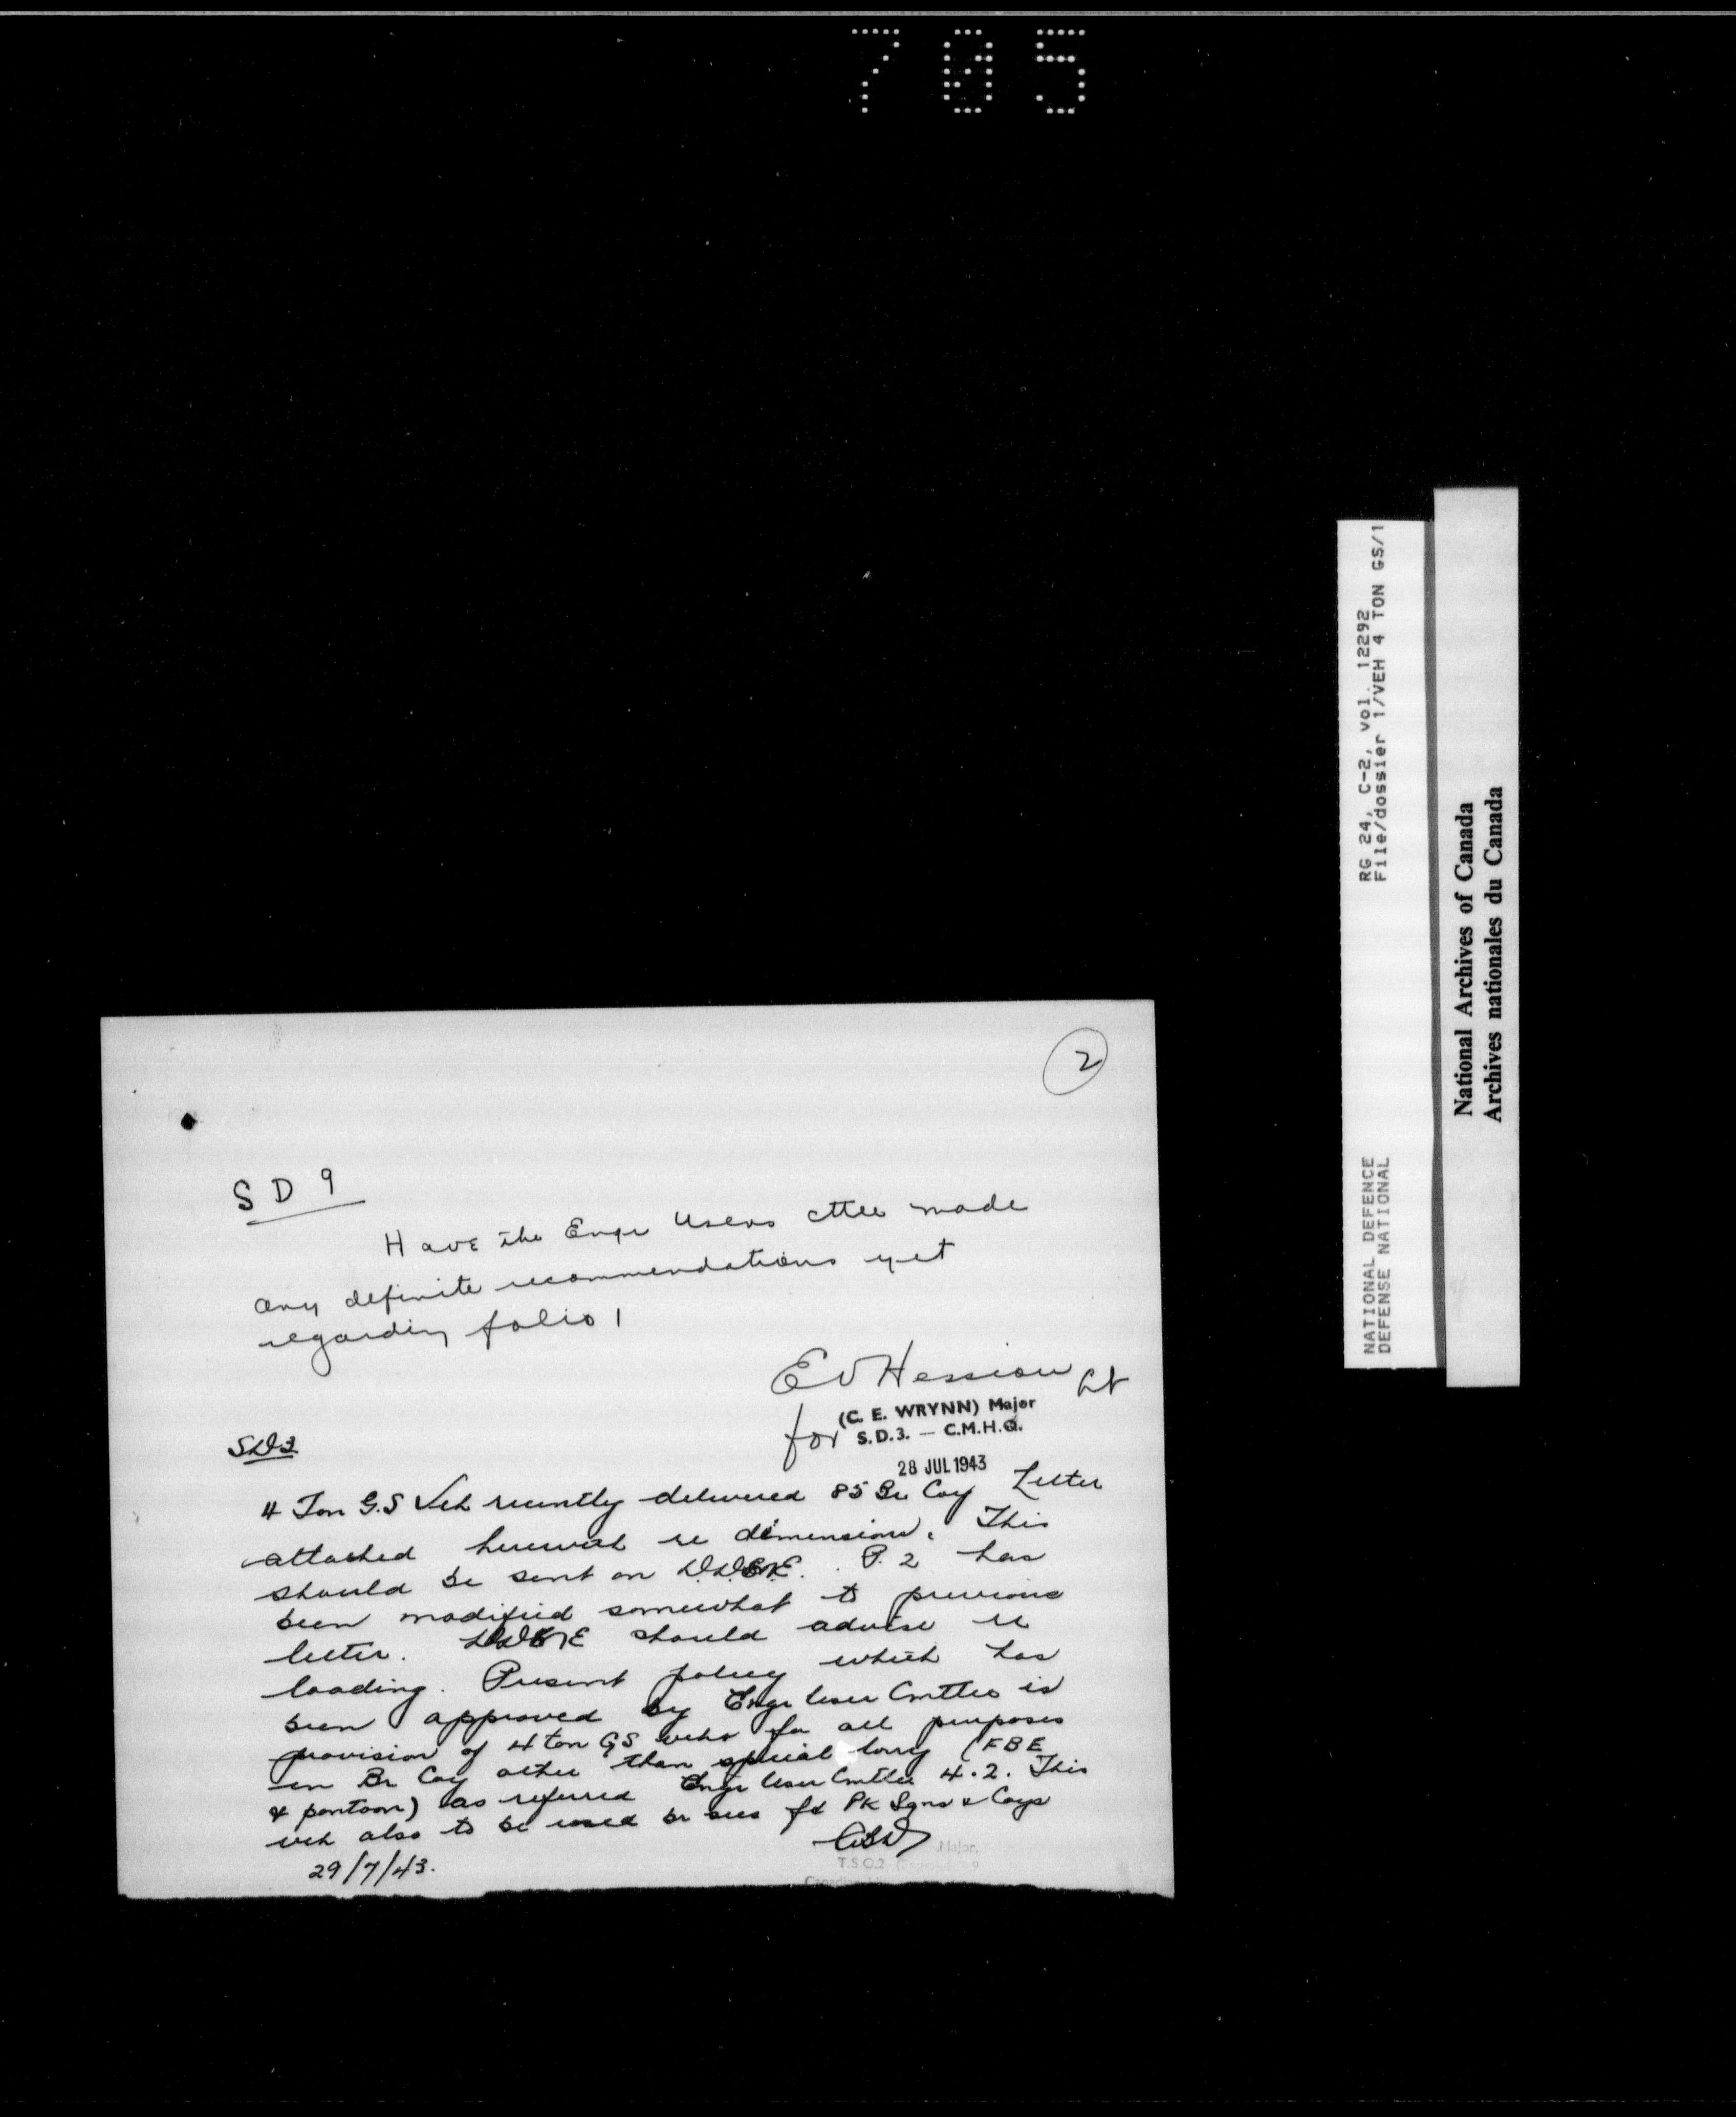 705
2
S D 9
Have the Engr Users cttee made
any definite recommendations yet
regarding folio 1
EV Hession Lt
for (C. E. WRYNN) Major
S.D.3. — C.M.H.Q.
28 JUL 1943
SD3
4 Ton G.S Veh recently delivered 85 Br Coy Letter
attached herewith re dimensions. This
should be sent on P. 2 has
been modified somewhat to previous
letter. should advise re
loading. Present policy which has
been approved by Engr User Cmttee is
provision of 4 ton GS vehs for all purposes
in Br Coy other than special lorry (FBE
& pontoon) as referred Engr User Cmttee 4.2. This
veh also to be used br secs fd Pk Sqns & Coys
Major,
29/7/43.
T.S.O.2
RG 24, C-2, vol. 12292
File/dossier 1/VEH 4 TON GS/1
NATIONAL DEFENCE
DEFENSE NATIONAL
National Archives of Canada
Archives nationales du Canada